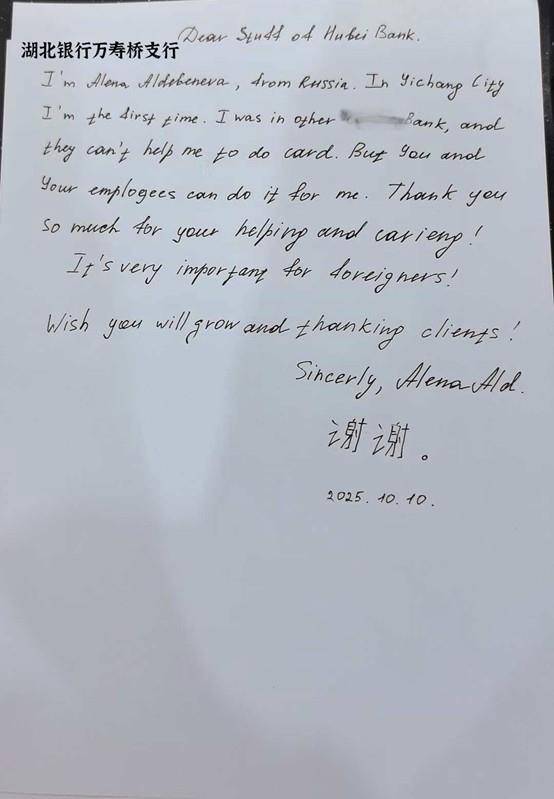 Dear Stuff of Hubei Bank.
湖北银行万寿桥支行
I'm Alena Aldebeneva, from Russia. In Yichang City
I'm the first time. I was in other Bank, and
they can't help me to do card. But you and
Your emplogees can do it for me. Thank you
so much for your helping and carieng!
It's very important for foreigners!
Wish you will grow and thanking clients!
Sincerly, Alena Ald.
谢谢。
2025.10.10.